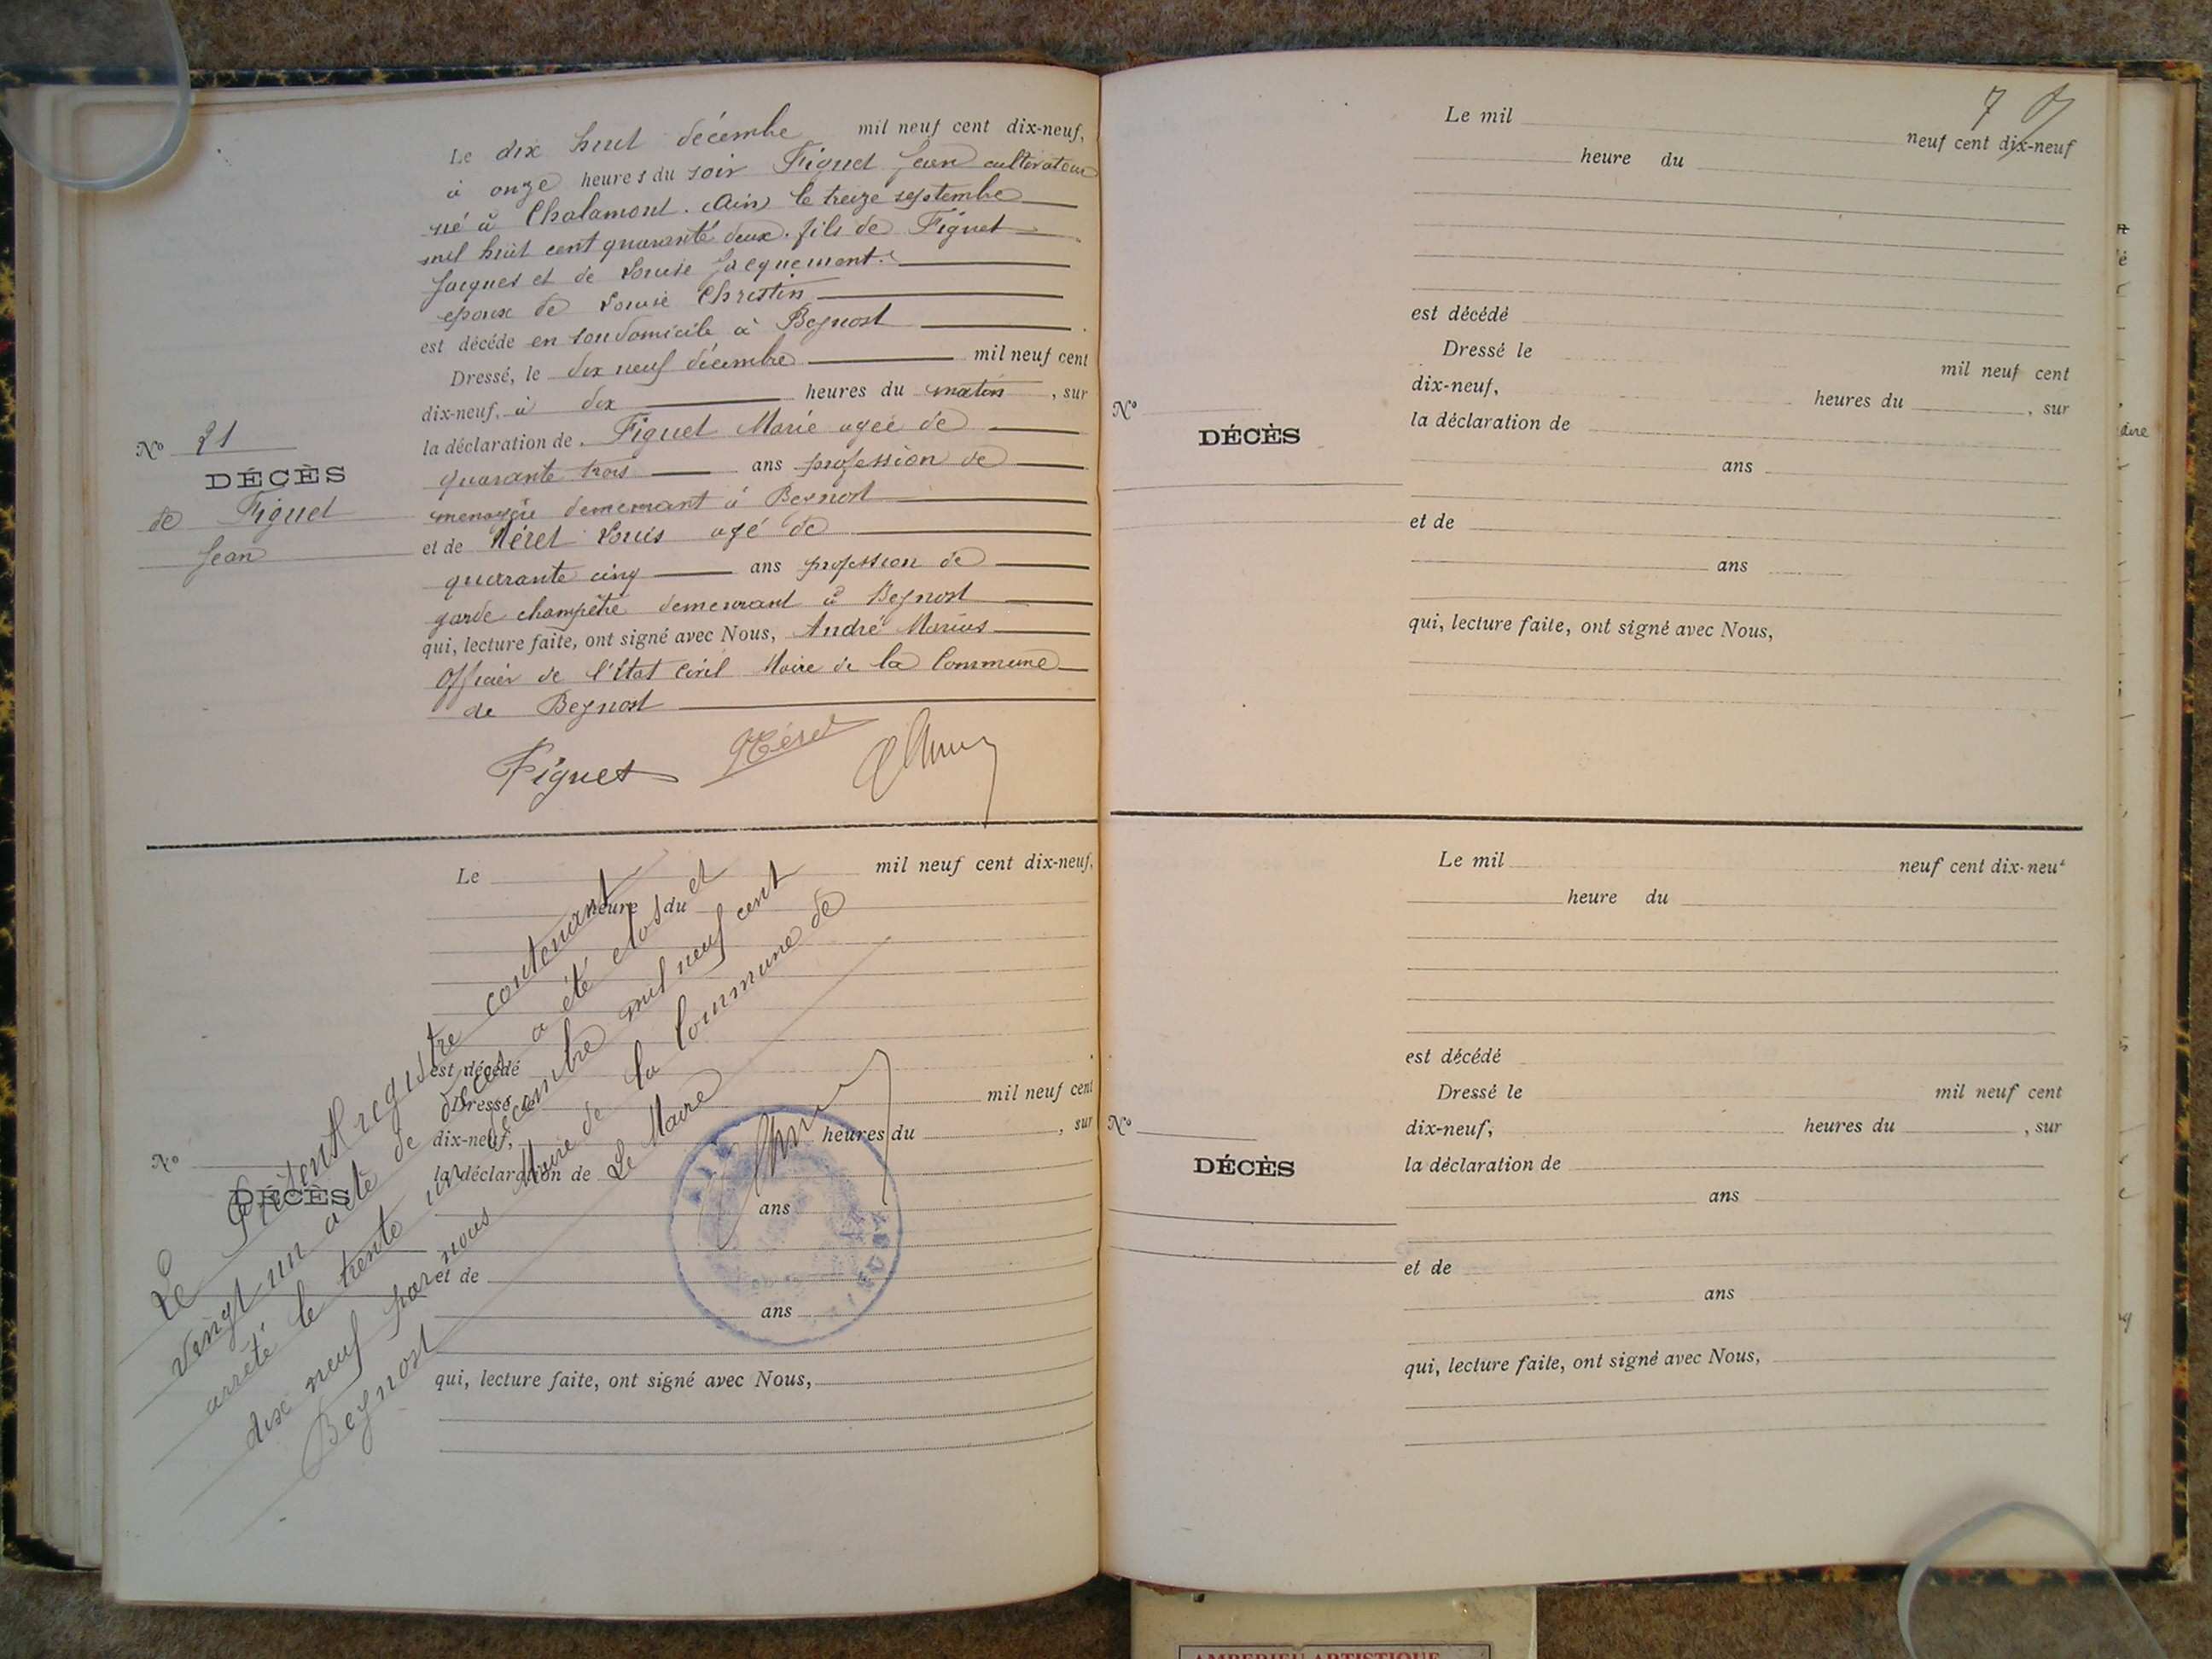 Le dix huit décembre mil neuf cent dix-neuf,
à onze heures du soir Figuet Jean cultivateur
né à Chalamont. Ain le treize septembre
mil huit cent quarante deux. fils de Figuet
Jacques et de Louise Jacquemont.
epoux de Louise Christin
est décédé en son domicile à Beynost
Dressé, le dix neuf décembre mil neuf cent
dix-neuf, à dix heures du matin, sur
la déclaration de Figuet Marie agée de
quarante trois ans profession de
menagère demeurant à Beynost
et de Héret Louis agé de
quarante cinq ans profession de
garde champêtre demeurant à Beynost
qui, lecture faite, ont signé avec Nous, André Marius
Officier de l'Etat Civil Maire de la Commune
de Beynost
Figuet Héret
No 21
DÉCÈS
de Figuet
Jean
Le mil neuf cent dix-neuf,
heure du
est décédé
Dressé le mil neuf cent
dix-neuf, heures du , sur
la déclaration de
ans
et de
ans
qui, lecture faite, ont signé avec Nous,
No
DÉCÈS
Le Présent registre contenant
vingt un acte de décès a été clos et
arrêté le trente un décembre mil neuf cent
dix neuf par nous Maire de la Commune de
Beynost
Le Maire
7
Le mil neuf cent dix-neuf
heure du
est décédé
Dressé le mil neuf cent
dix-neuf, heures du , sur
la déclaration de
ans
et de
ans
qui, lecture faite, ont signé avec Nous,
No
DÉCÈS
Le mil neuf cent dix-neuf
heure du
est décédé
Dressé le mil neuf cent
dix-neuf, heures du , sur
la déclaration de
ans
et de
ans
qui, lecture faite, ont signé avec Nous,
No
DÉCÈS
AMBERIEU ARTISTIQUE